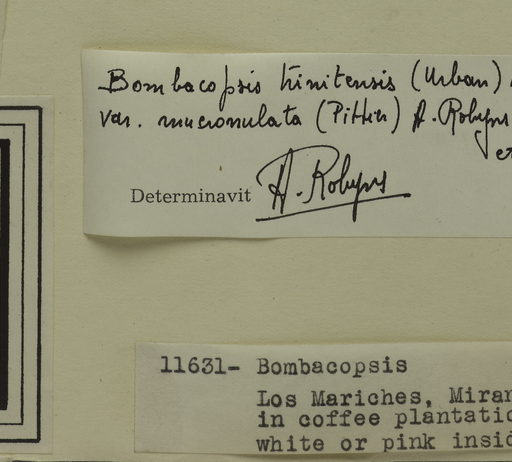 Bombacopsis trinitensis (Urban)
var. mucronulata (Pittier) A. Robyns
Determinavit A. Robyns
11631- Bombacopsis
Los Mariches, Miran
in coffee plantatio
white or pink insid